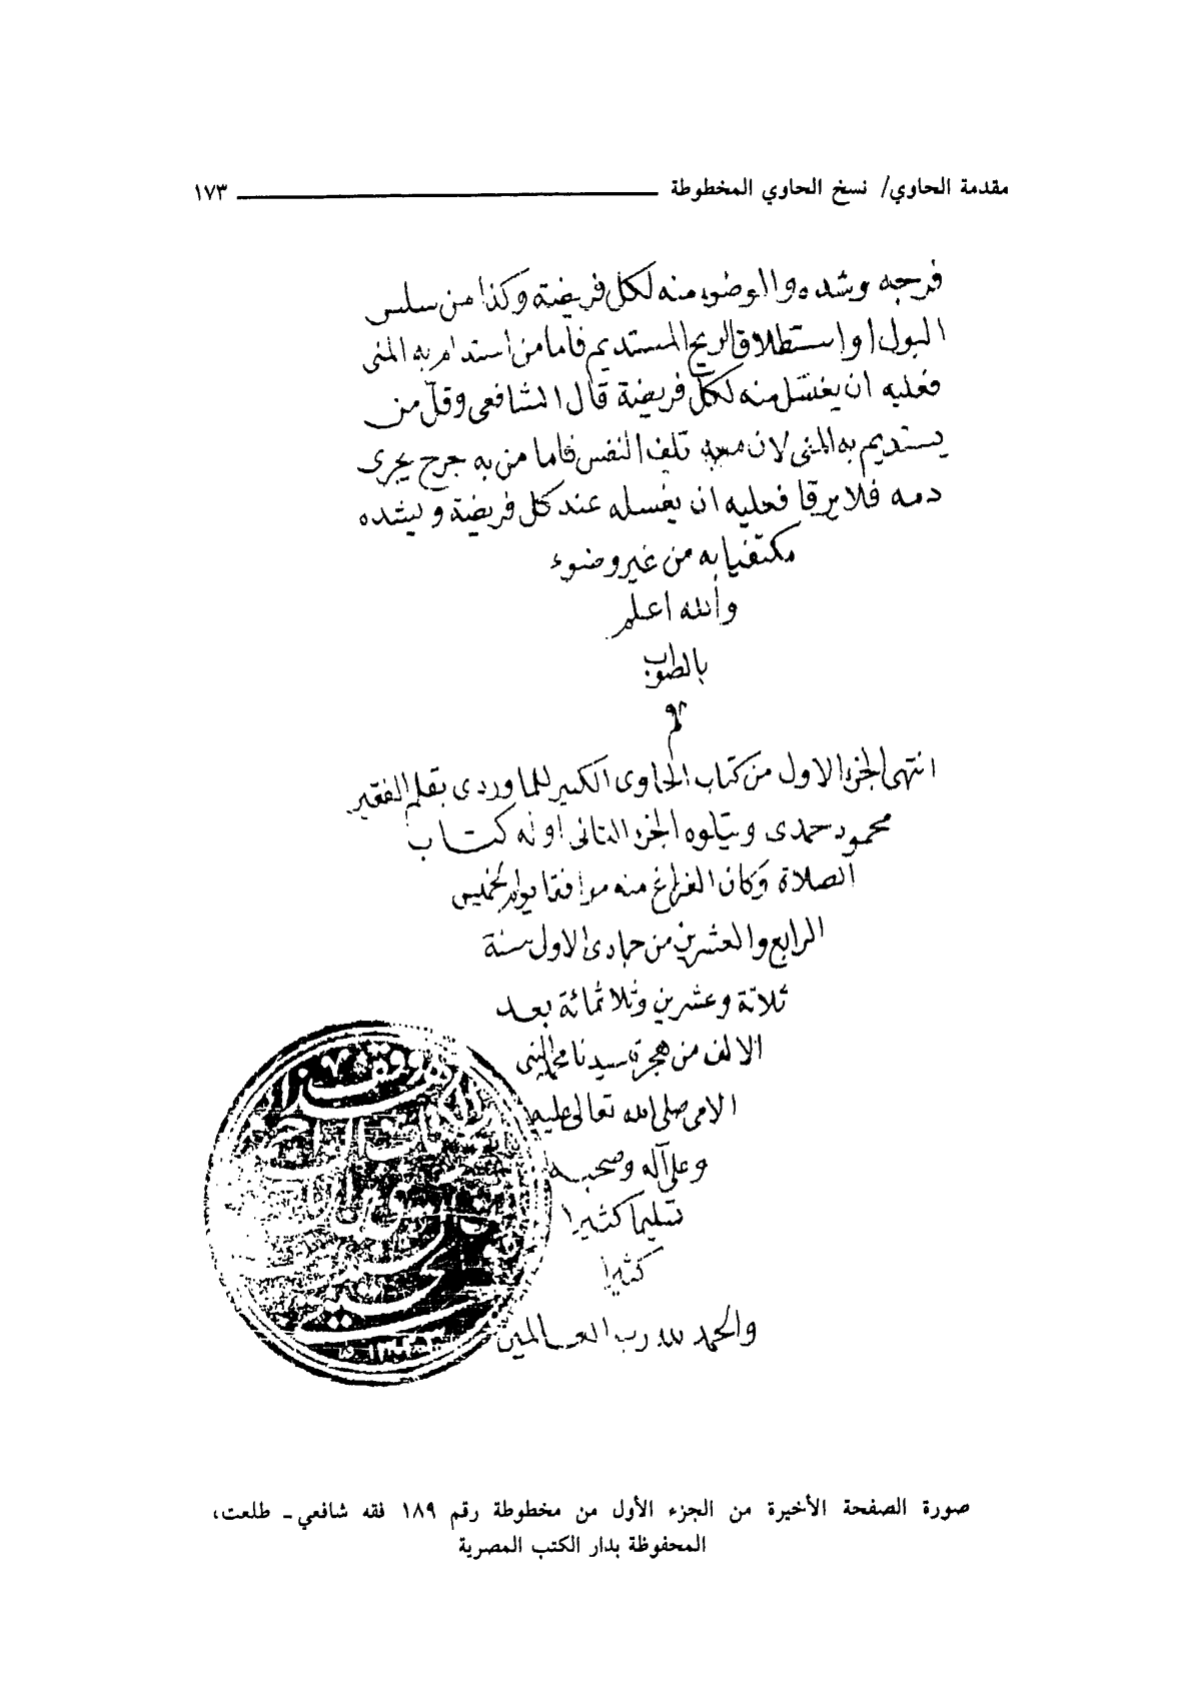 مقدمة الحاوي/ نسخ الحاوي المخطوطة ١٧٣
فرجه وشده والوضوء منه لكل فريضة وكذا من سلس
البول او استطلاق الريح المستديم فأما من استدام به المنى
فعليه ان يغتسل منه لكل فريضة قال الشافعى وقل من
يستديم به المنى لان معه تلف النفس فاما من به جرح يجرى
دمه فلا يرقا فعليه ان يغسله عند كل فريضة ويشده
مكتفيا به من غير وضوء
والله اعلم
بالصواب
م
انتهى الجزء الاول من كتاب الحاوى الكبير للماوردى بقلم الفقير
محمود حمدى ويتلوه الجزء الثانى اوله كتاب
الصلاة وكان الفراغ منه موافقا يوم الخميس
الرابع والعشرين من جمادى الاول سنة
ثلاثة وعشرين وثلاثمائة بعد
الالف من هجرة سيدنا محمد النبى
الامى صلى الله تعالى عليه
وعلى آله وصحبه
تسليما كثيرا
كثيرا
والحمد لله رب العالمين
صورة الصفحة الأخيرة من الجزء الأول من مخطوطة رقم ١٨٩ فقه شافعي ـ طلعت،
المحفوظة بدار الكتب المصرية